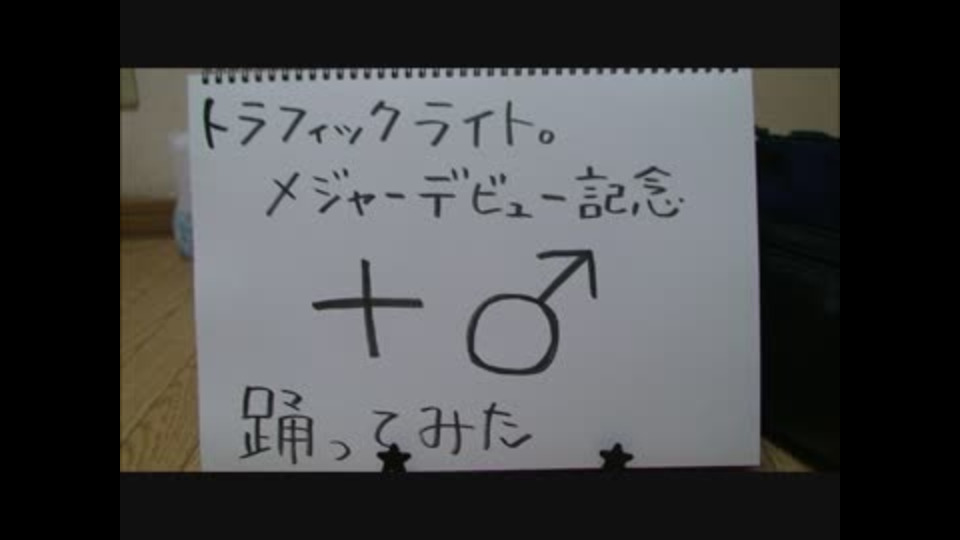 トラフィックライト。
メジャーデビュー記念
+♂
踊ってみた